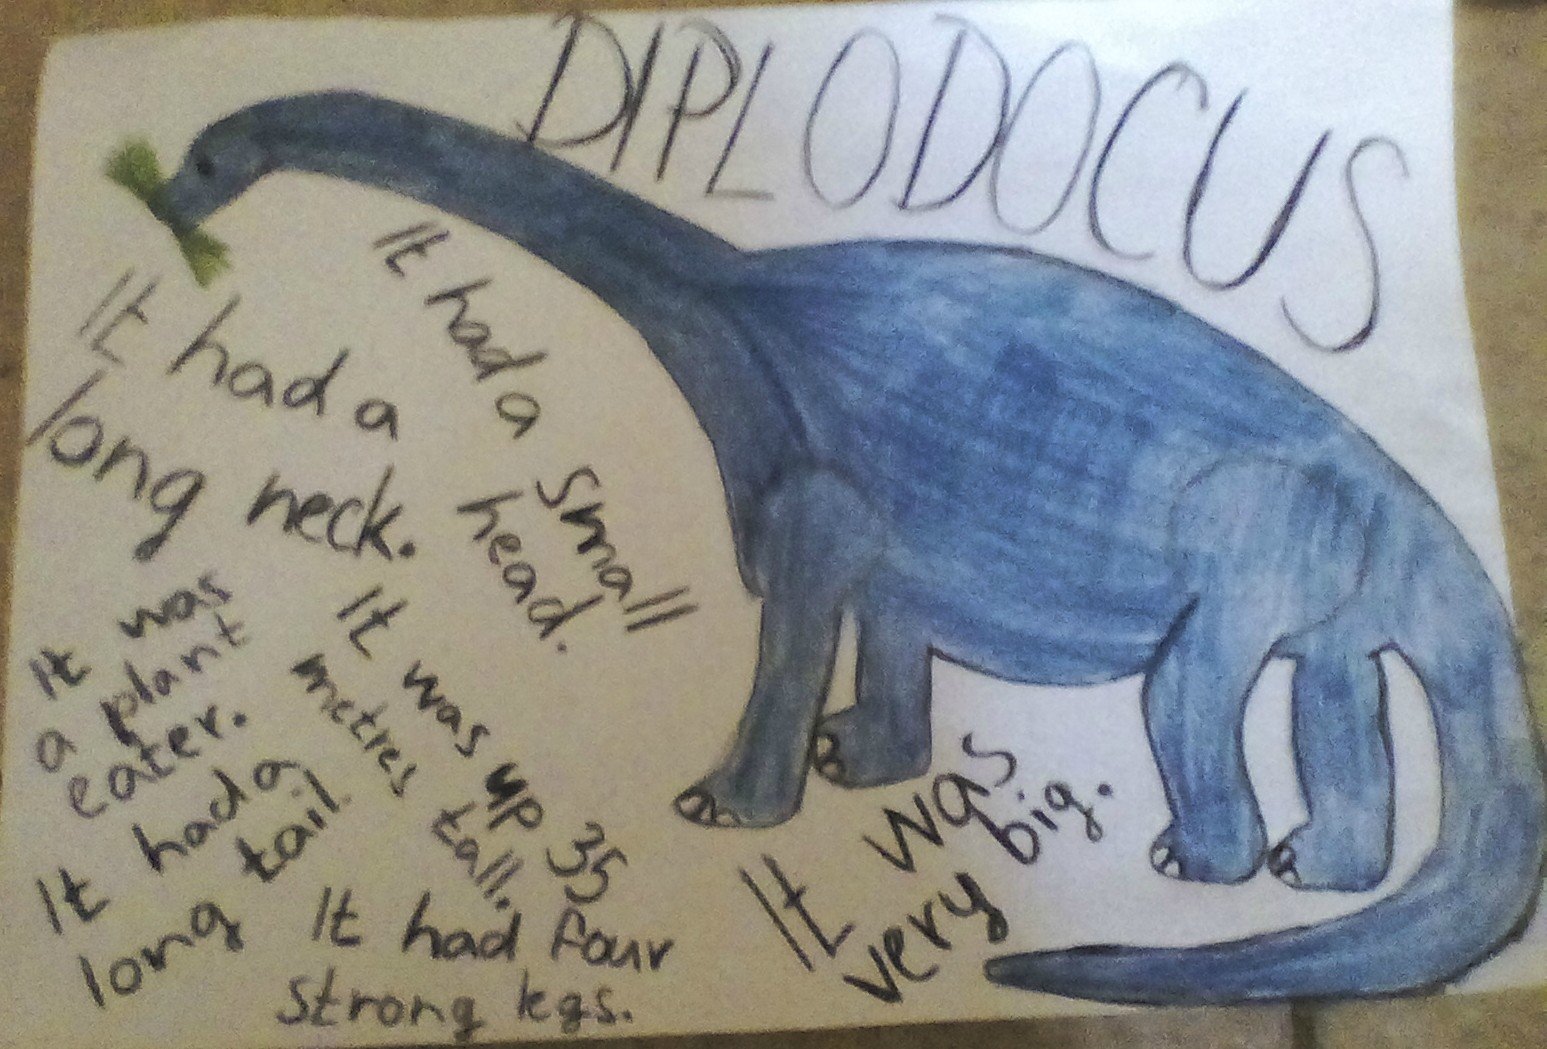 DIPLODOCUS
It had a
small
head.
It had a
long neck.
It was
a plant
eater.
It was up 35
metres tall.
It had a
long tail.
It had four
strong legs.
It was
very big.